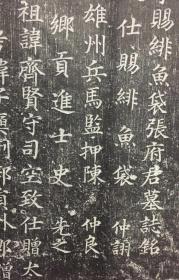 賜緋魚袋張府君墓誌銘
仕賜緋魚袋 仲詡
雄州兵馬監押陳 仲良
鄉貢進士史 先之
祖諱齊賢守司空致仕贈太